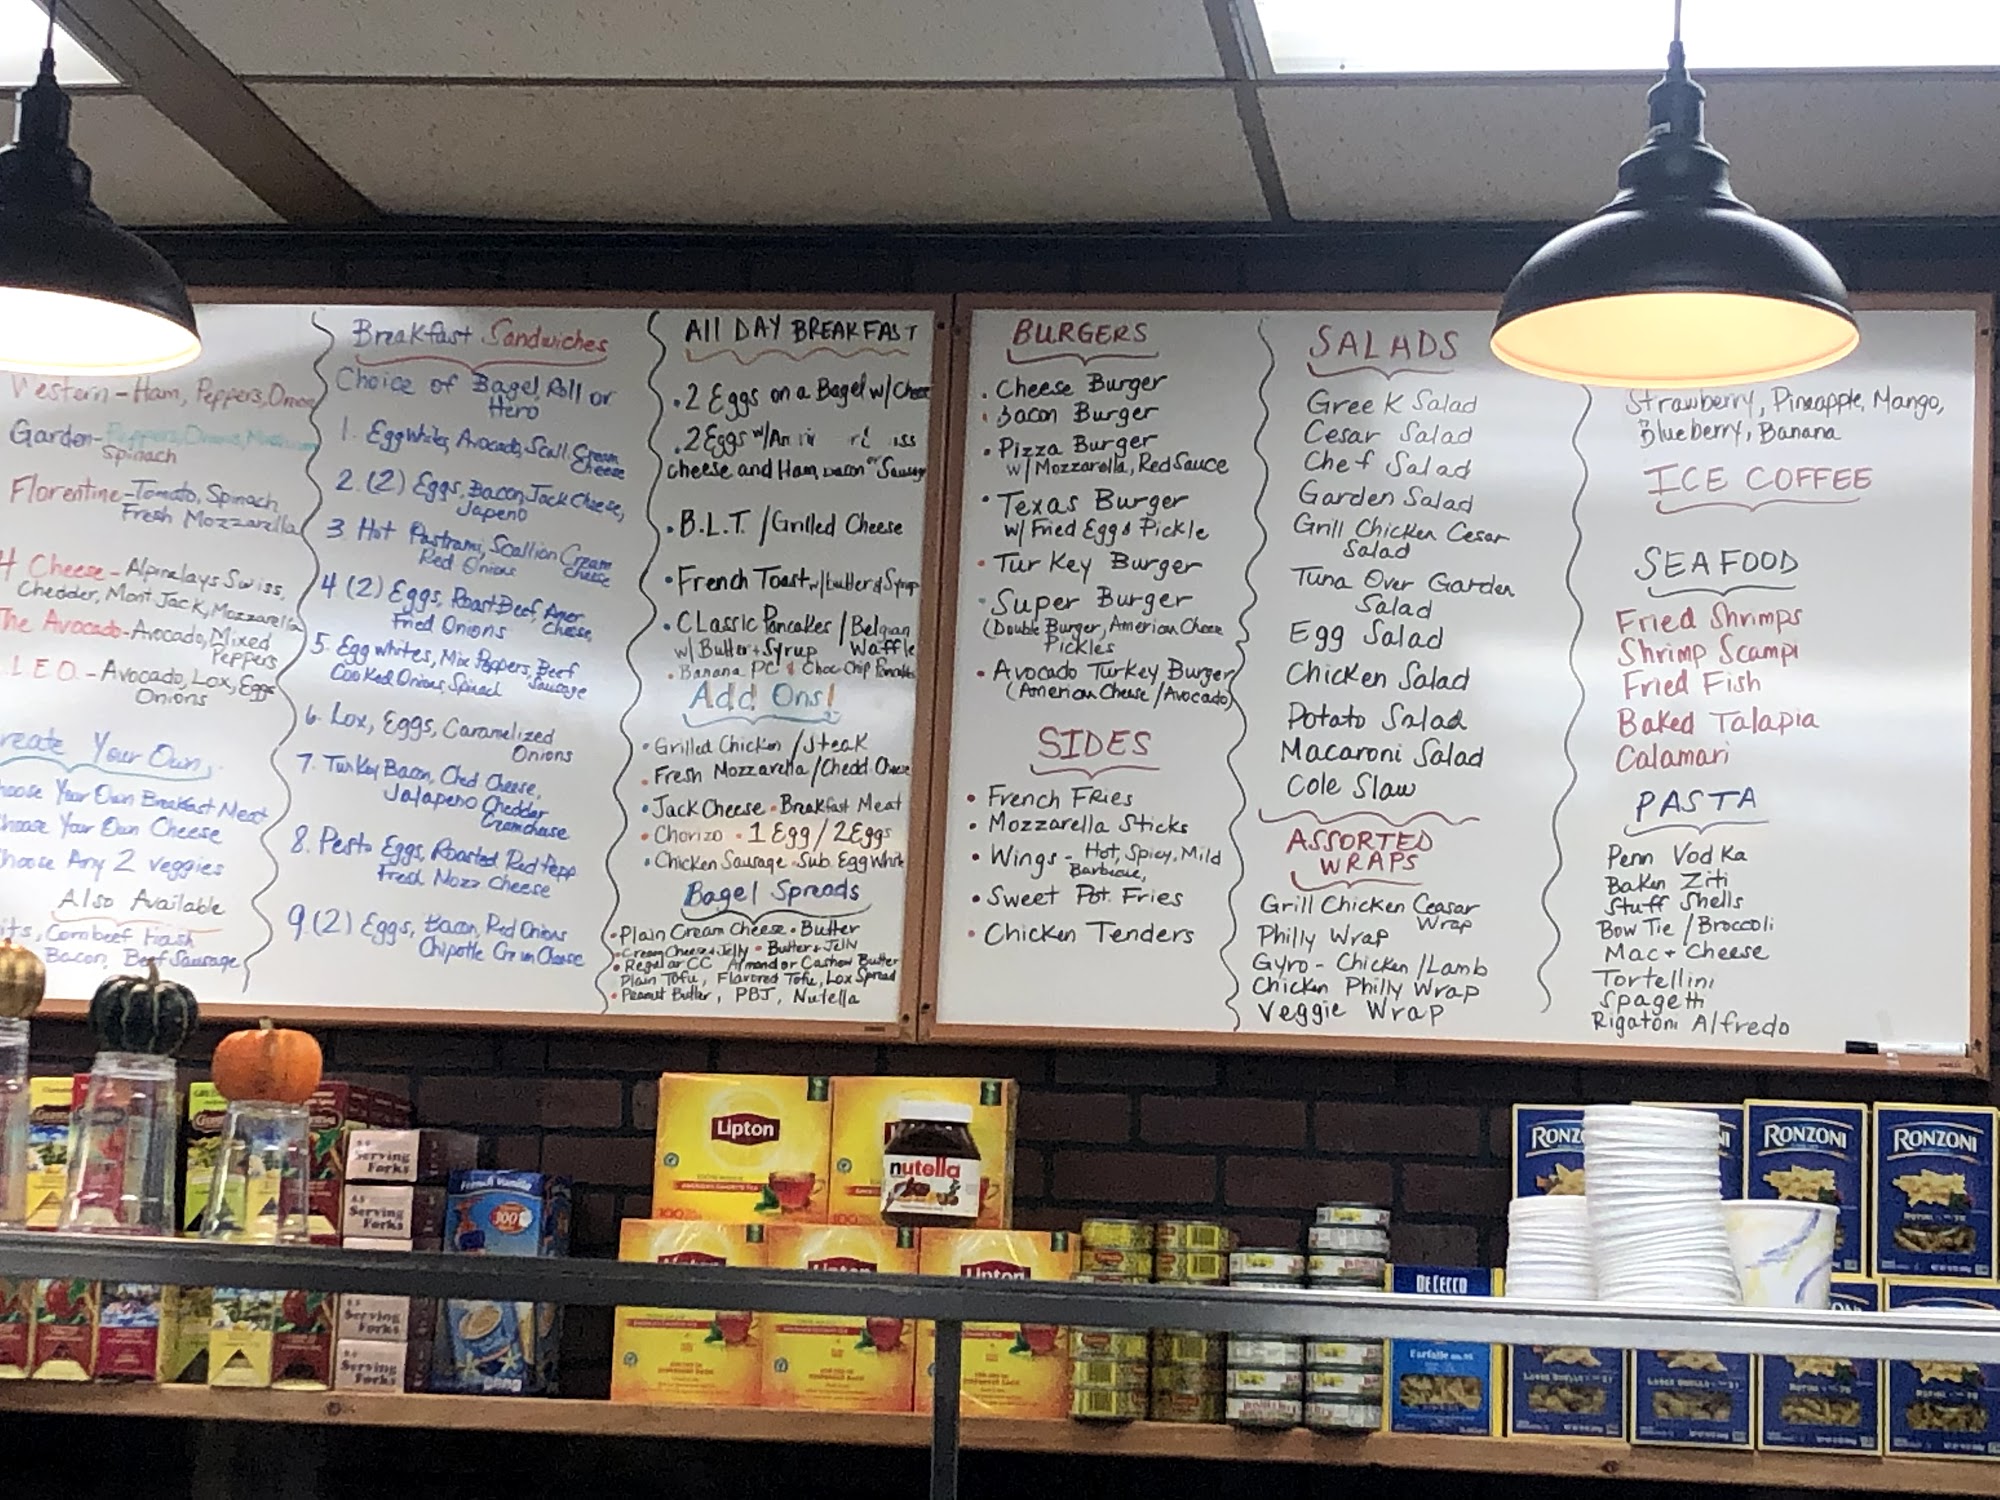 Western - Ham, Peppers, Onion
Garden - Peppers, Onions, Mushroom
Spinach
Florentine - Tomato, Spinach
Fresh Mozzarella
4 Cheese - Alpinelays Swiss,
Chedder, Mont Jack, Mozzarella
The Avocado - Avocado, Mixed
Peppers
L.E.O. - Avocado, Lox, Eggs
Onions
reate Your Own,
hoose Your Own Breakfast Meat
hoose Your Own Cheese
hoose Any 2 veggies
Also Available
its, Cornbeef Hash
Bacon, Beef Sausage
Breakfast Sandwiches
Choice of Bagel, Roll or
Hero
1. Egg Whites, Avocado, Scall. Cream
Cheese
2. (2) Eggs, Bacon, Jack Cheese,
Japeno
3. Hot Pastrami, Scallion Cream
Red Onions Cheese
4 (2) Eggs, Roast Beef, Amer
Fried Onions Cheese,
5. Egg whites, Mix Peppers, Beef
Cooked Onions, Spinach Sausage
6. Lox, Eggs, Caramelized
Onions
7. Turkey Bacon, Ched Cheese,
Jalapeno Chedder
8. Pesto Eggs, Roasted Red Pepp
Fresh Mozz Cheese
9. (2) Eggs, Bacon, Red Onions
Chipotle Cream Cheese
All DAY BREAKFAST
. 2 Eggs on a Bagel w/Cheese
. 2 Eggs w/
cheese and Ham, bacon or Sausag
. B.L.T. / Grilled Cheese
. French Toast w/butter & Syrup
. Classic Pancakes / Belgian
w/ Butter + Syrup Waffle
. Banana PC & Choc Chip Pancakes
Add Ons!
. Grilled Chicken / Steak
. Fresh Mozzarella / Chedd Cheese
. Jack Cheese . Breakfast Meat
. Chorizo . 1 Egg / 2 Eggs
. Chicken Sausage . Sub. Egg White
Bagel Spreads
. Plain Cream Cheese . Butter
. Cream Cheese & Jelly . Butter + Jelly
. Regular CC Almond or Cashew Butter
Plain Tofu, Flavored Tofu, Lox Spread
. Peanut Butter, PBJ, Nutella
BURGERS
. Cheese Burger
. Bacon Burger
. Pizza Burger
w/ Mozzarella, Red Sauce
. Texas Burger
w/ Fried Egg & Pickle
. Turkey Burger
. Super Burger
(Double Burger, American Cheese
Pickles
. Avocado Turkey Burger
(American Cheese / Avocado)
SIDES
. French Fries
. Mozzarella Sticks
. Wings - Hot, Spicy, Mild
Barbicue,
. Sweet Pot. Fries
. Chicken Tenders
SALADS
Greek Salad
Cesar Salad
Chef Salad
Garden Salad
Grill Chicken Cesar
Salad
Tuna Over Garden
Salad
Egg Salad
Chicken Salad
Potato Salad
Macaroni Salad
Cole Slaw
ASSORTED
WRAPS
Grill Chicken Ceasar
Wrap
Philly Wrap
Gyro - Chicken / Lamb
Chicken Philly Wrap
Veggie Wrap
Strawberry, Pineapple, Mango,
Blueberry, Banana
ICE COFFEE
SEAFOOD
Fried Shrimps
Shrimp Scampi
Fried Fish
Baked Talapia
Calamari
PASTA
Penn Vodka
Baken Ziti
Stuff Shells
Bow Tie / Broccoli
Mac + Cheese
Tortellini
Spagetti
Rigatoni Alfredo
Lipton
nutella
100
100
Serving
Forks
Serving
Forks
Serving
Forks
Serving
Forks
French Vanilla
300
Lipton
Lipton
Lipton
DE CECCO
Farfalle
RONZONI
RONZONI
RONZ
NI
ROTINI